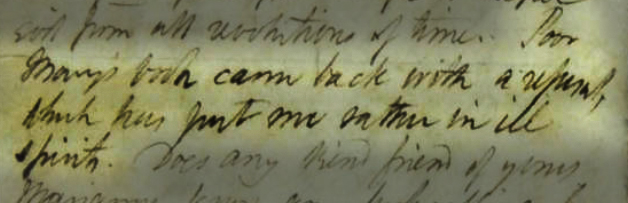 from all revolutions of time. Poor
Mary's book came back with a refusal,
which has put me rather in ill
spirits. Does any kind friend of yours
Marianne know any